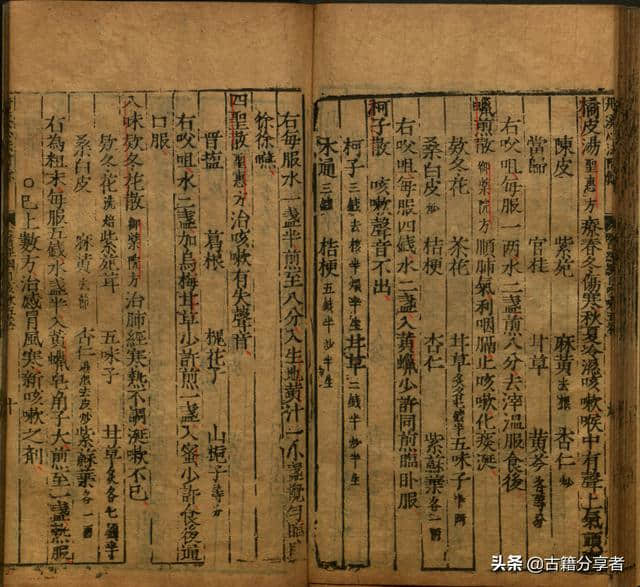 橘皮湯 聖惠方 療春冬傷寒秋夏冷濕咳嗽喉中有聲上氣頭
陳皮 紫菀 麻黃 去根 杏仁 炒
當歸 官桂 甘草 黃芩 各等分
右㕮咀每服一兩水二盞煎八分去滓溫服食後
蠟煎散 御藥院方 順肺氣利咽膈止咳嗽化痰涎
款冬花 甘草 五味子
桑白皮 桔梗 杏仁 紫蘇葉 各一兩
右㕮咀每服四錢水二盞入黃蠟少許同煎臨卧服
柯子散 咳嗽聲音不出
柯子 三錢去核半煨半生 甘草 二錢半炒半生
木通 三錢 桔梗 五錢半炒半生
右每服水一盞半煎至八分入生地黃汁一小盞攪勻臨卧
徐徐嚥
四聖散 聖惠方 治咳嗽有失聲音
晋塩 葛根 槐花子 山梔子 等分
右㕮咀水二盞加烏梅甘草少許煎一盞入蜜少許食後通
口服
八味款冬花散 御藥院方 治肺經寒熱不調涎嗽不已
款冬花 洗焙 紫菀茸 五味子 甘草 炙各七錢半
桑白皮 麻黃 去節 杏仁 湯泡去皮炒 紫蘇葉 各一兩
右為粗末每服五錢水盞半入黃蠟皂角子大煎至一盞熱服
○已上數方治感冒風寒新咳嗽之劑
头条 @古籍分享者